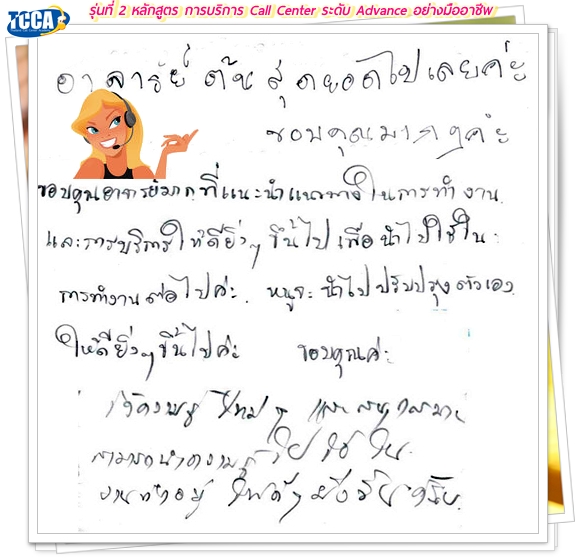 TCCA
รุ่นที่ 2 หลักสูตร การบริการ Call Center ระดับ Advance อย่างมืออาชีพ
อาจารย์ ต้น สุดยอดไปเลยค่ะ
ขอบคุณมากๆค่ะ
ขอบคุณอาจารย์มากที่แนะนำแนวทางในการทำงาน
และการบริการให้ดียิ่งๆ ขึ้นไป เพื่อนำไปใช้ใน
การทำงานต่อไปค่ะ. หนูจะนำไปปรับปรุงตัวเอง
ให้ดียิ่งๆขึ้นไปค่ะ ขอบคุณค่ะ
ได้ความรู้ ใหม่ๆ และ
สามารถนำความรู้ไปใช้ใน
งาน